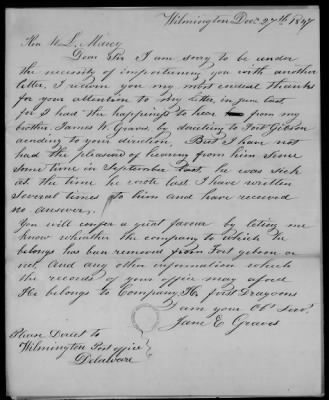 Wilmington Dec 27th 1847
Hon W. L. Marcy
Dear Sir I am sorry to be under
the necessity of importuning you with another
letter, I return you my most cordial thanks
for your attention to my letter in June last
for I had the happiness to hear from my
brother James W. Graves by directing to Fort Gibson
according to your direction, But I have not
had the pleasure of hearing from him since
some time in September last, he was sick
at the time he wrote last I have written
several times to him and have received
no answer,
You will confer a great favour by leting me
know wheather the company to which he
belongs has been removed from Fort Gibson or
not, And any other information which
the records of your office may aford
He belongs to Company H. first Dragoons
I am your Obt Servt
Jane E Graves
Please Direct to
Wilmington Post office
Delaware